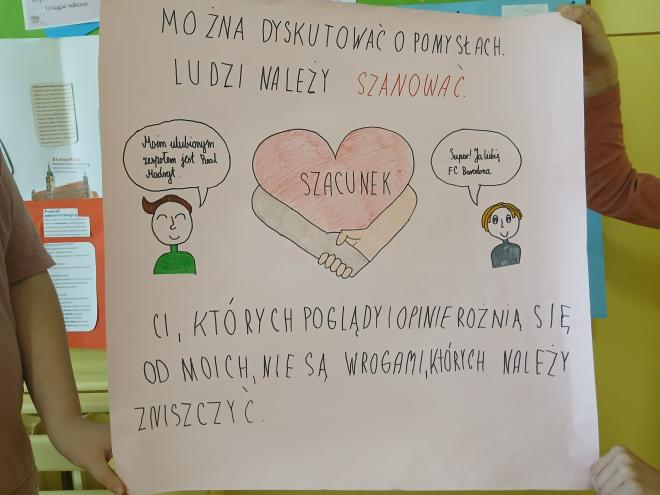 MOŻNA DYSKUTOWAĆ O POMYSŁACH.
LUDZI NALEŻY SZANOWAĆ.
Moim ulubionym
zespołem jest Real
Madryt.
SZACUNEK
Super! Ja lubię
FC Barcelona
CI, KTÓRYCH POGLĄDY I OPINIE ROŻNIĄ SIĘ
OD MOICH, NIE SĄ WROGAMI, KTÓRYCH NALEŻY
ZNISZCZYĆ.